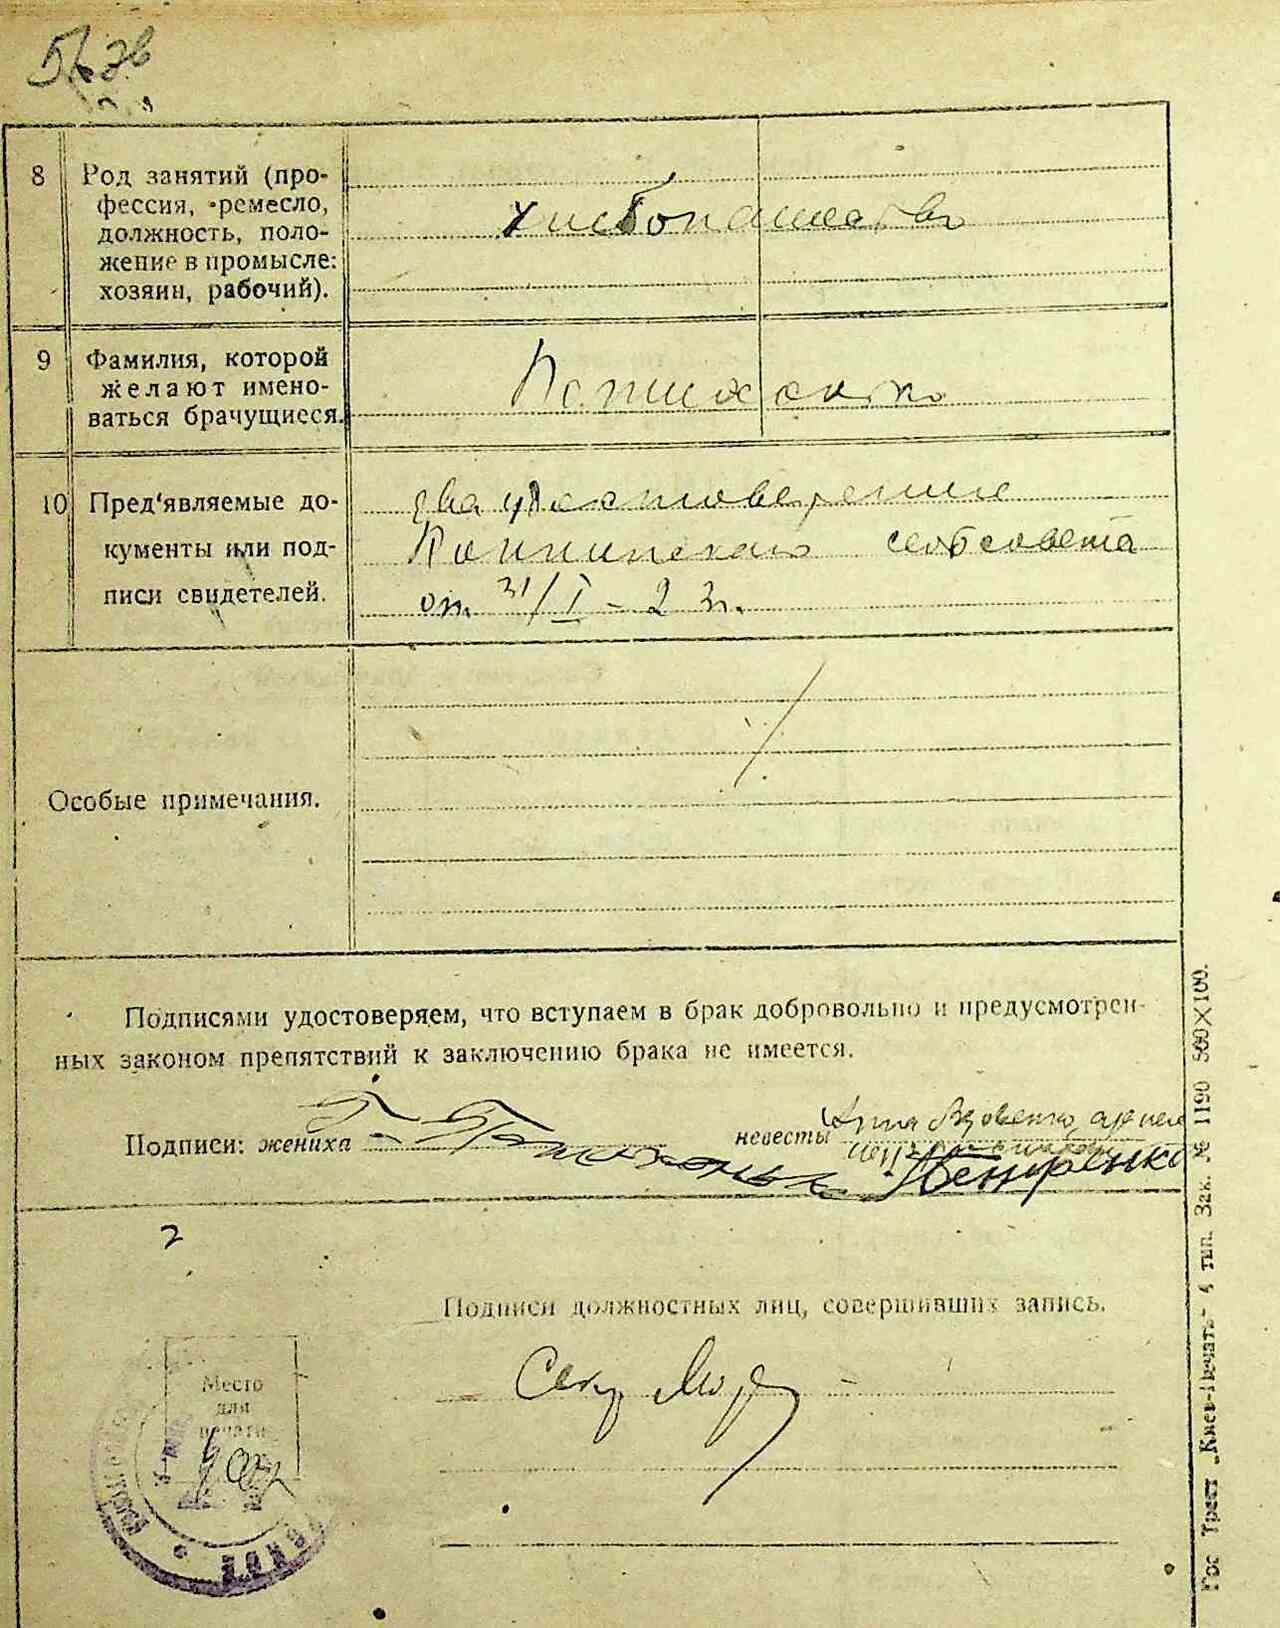 8
Род занятий (про-
фессия, ремесло,
должность, поло-
жение в промысле:
хозяин, рабочий).
хлебопашество
9
Фамилия, которой
желают имено-
ваться брачущиеся.
10
Пред'являемые до-
кументы или под-
писи свидетелей.
два удостоверение
сельсовета
от 31/I - 23 г.
Особые примечания.
Подписями удостоверяем, что вступаем в брак добровольно и предусмотрен-
ных законом препятствий к заключению брака не имеется.
Подписи: жениха
невесты Анна
Петренко
2
Подписи должностных лиц, совершивших запись.
Секр
Место
для
печати
Гос Трест „Киев-Печать“ 4 тип. Зак. № 1190 500×100.